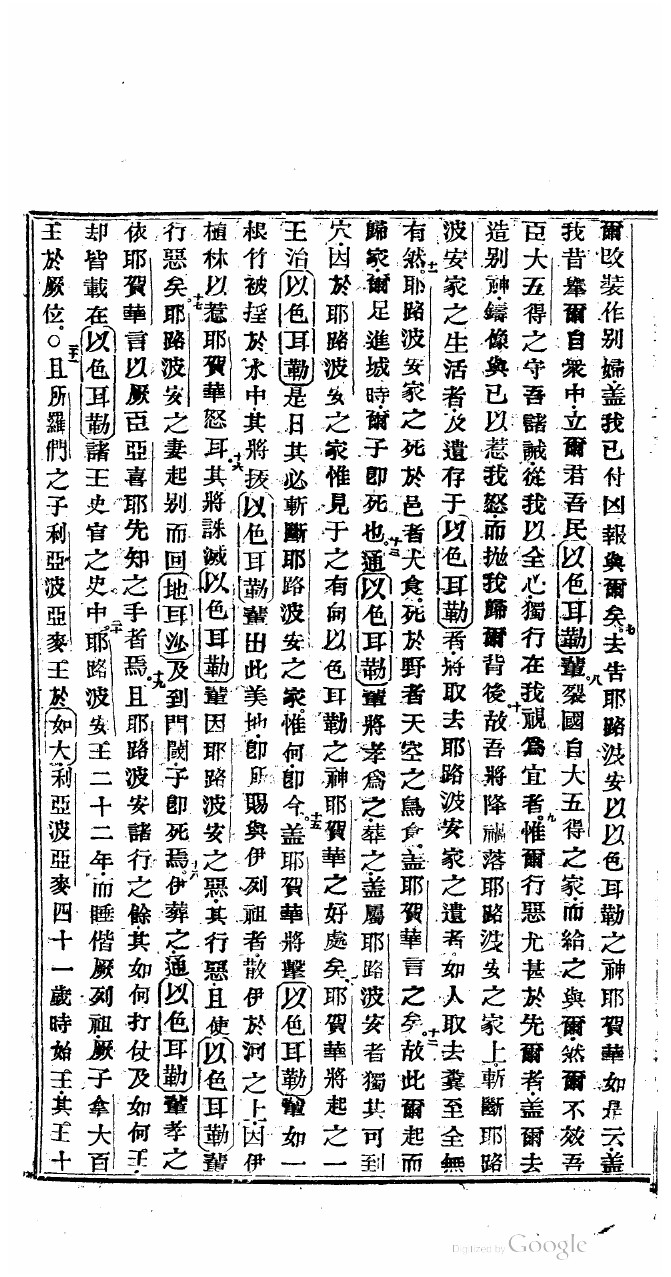 爾改裝作別婦盖我已付凶報與爾矣七去告耶路波安以以色耳勒之神耶賀華如是云盖
我昔舉爾自衆中立爾君吾民以色耳勒輩八裂國自大五得之家而給之與爾然爾不效吾
臣大五得之守吾諸誡從我以全心獨行在我視爲宜者九惟爾行惡尤甚於先爾者盖爾去
造別神鑄像與已以惹我怒而抛我歸爾背後十故吾將降禍落耶路波安之家上斬斷耶路
波安家之生活者及遺存于以色耳勒者將取去耶路波安家之遺者如人取去糞至全無
有然十一耶路波安家之死於邑者犬食死於野者天空之鳥食盖耶賀華言之矣十二故此爾起而
歸家爾足進城時爾子即死也十三通以色耳勒輩將孝爲之葬之盖屬耶路波安者獨其可到
穴因於耶路波安之家惟見于之有向以色耳勒之神耶賀華之好處矣十四耶賀華將起之一
王治以色耳勒是日其必斬斷耶路波安之家惟何即今十五盖耶賀華將擊以色耳勒輩如一
根竹被揺於水中其將拔以色耳勒輩出此美地即所賜與伊列祖者散伊於河之上因伊
植林以惹耶賀華怒耳十六其將誅滅以色耳勒輩因耶路波安之惡其行惡且使以色耳勒輩
行惡矣十七耶路波安之妻起別而回地耳沙及到門閾子即死焉十八伊葬之通以色耳勒輩孝之
依耶賀華言以厥臣亞喜耶先知之手者焉十九且耶路波安諸行之餘其如何打仗及如何王
却皆載在以色耳勒諸王史官之史中二十耶路波安王二十二年而睡偕厥列祖厥子拿大百
王於厥位〇二十一且所羅們之子利亞波亞麥王於如大利亞波亞麥四十一歲時始王其王十
Digitized by Google